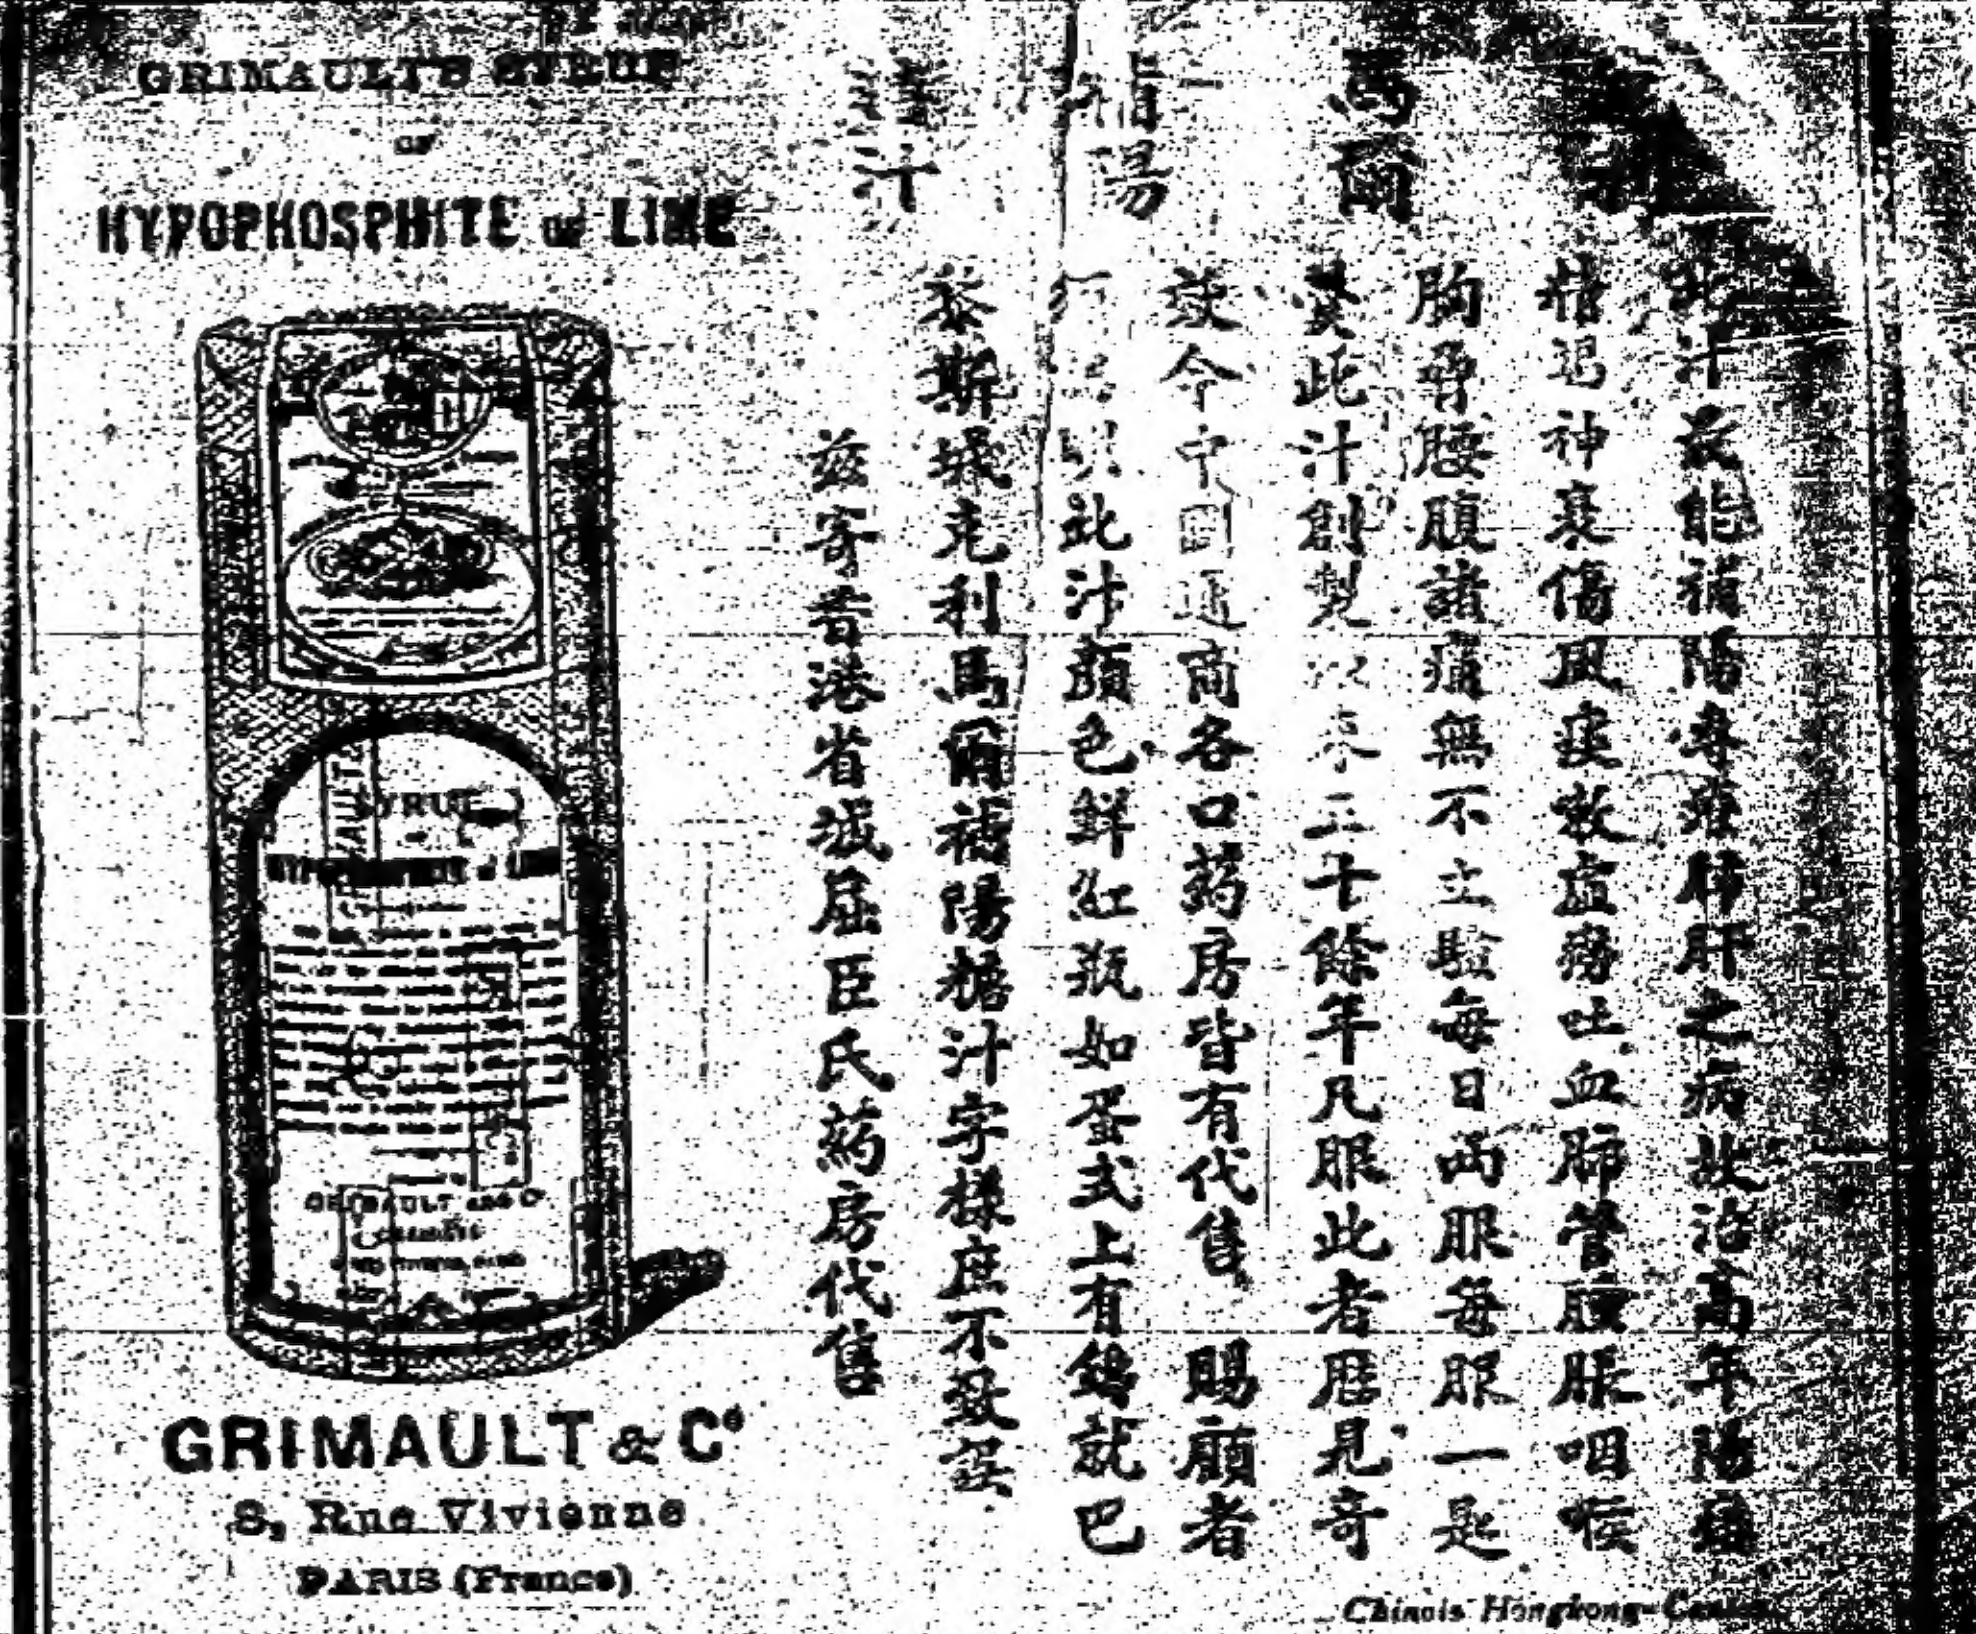 GRIMAULT'S SYRUP
OF
HYPOPHOSPHITE OF LIME
SYRUP
HYPOPHOSPHITE of LIME
GRIMAULT AND Cº
GRIMAULT & Cº
8, Rue Vivienne
PARIS (France)
馬爾
補陽
汁
此汁最能補陽專治肺肝之病故治高年陽痿
精竭神衰傷風痰咳虛癆吐血肺管脹咽喉
胸脅腰腹諸痛無不立驗每日両服每服一匙
此汁創製以來三十餘年凡服此者歷見奇
效今中國通商各口葯房皆有代售 賜顧者
此汁顏色鮮紅瓶如蛋式上有鎊就巴
黎斯城克利馬爾補陽糖汁字樣庶不致誤
茲寄香港省城屈臣氏葯房代售
Chinois Hongkong-Canton